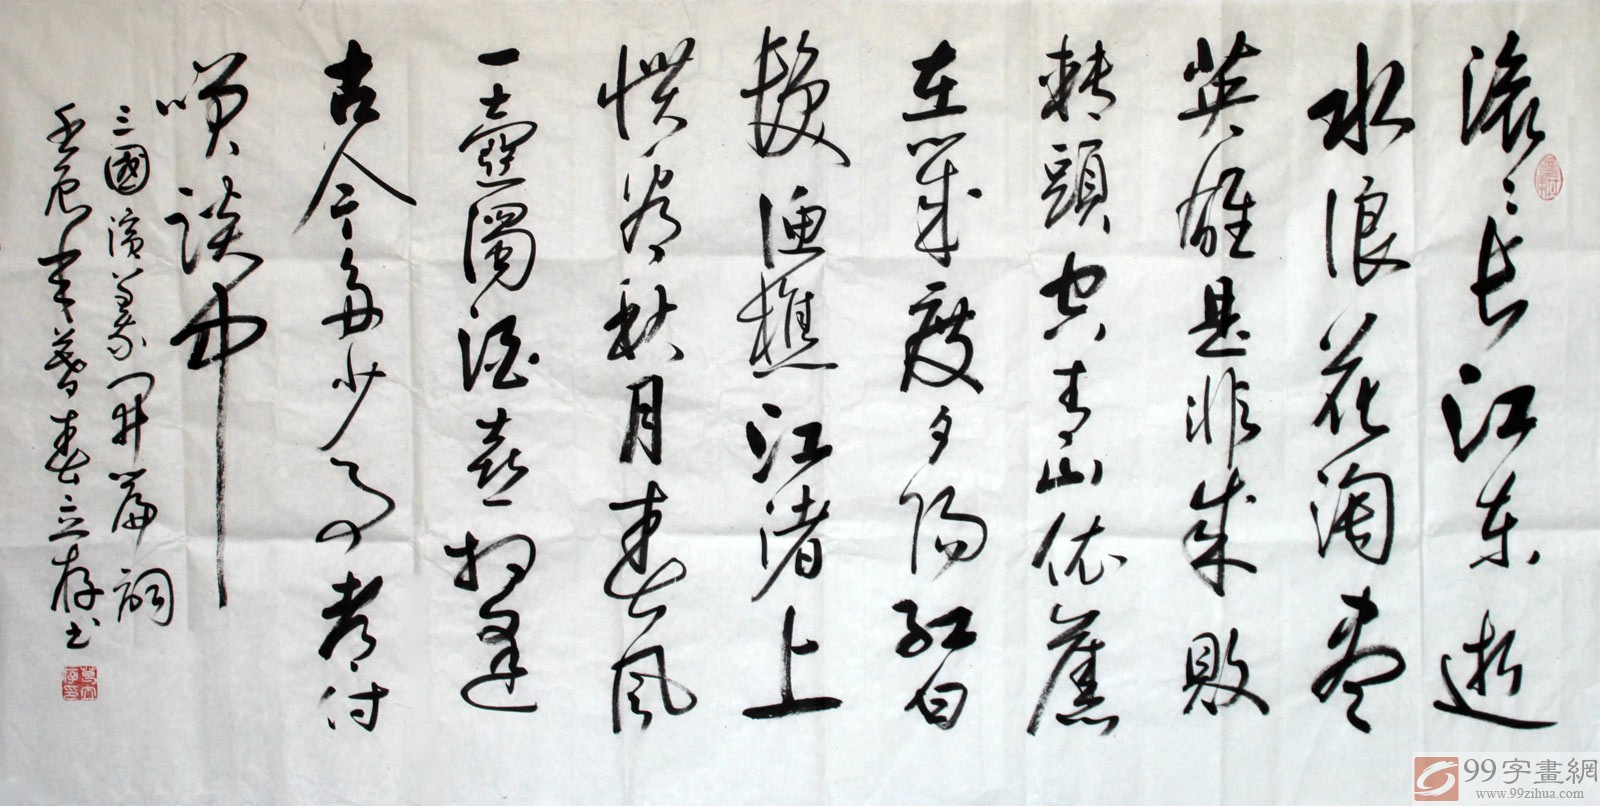 滚〻长江东逝
水浪花淘盡
英雄是非成败
轉頭空青山依舊
在幾度夕阳红白
髮渔樵江渚上
惯看秋月春风
一壺濁酒喜相逢
古今多少事都付
笑談中
三國演義開篇詞
壬辰年暮春立存书
99字畫網
www.99zihua.com